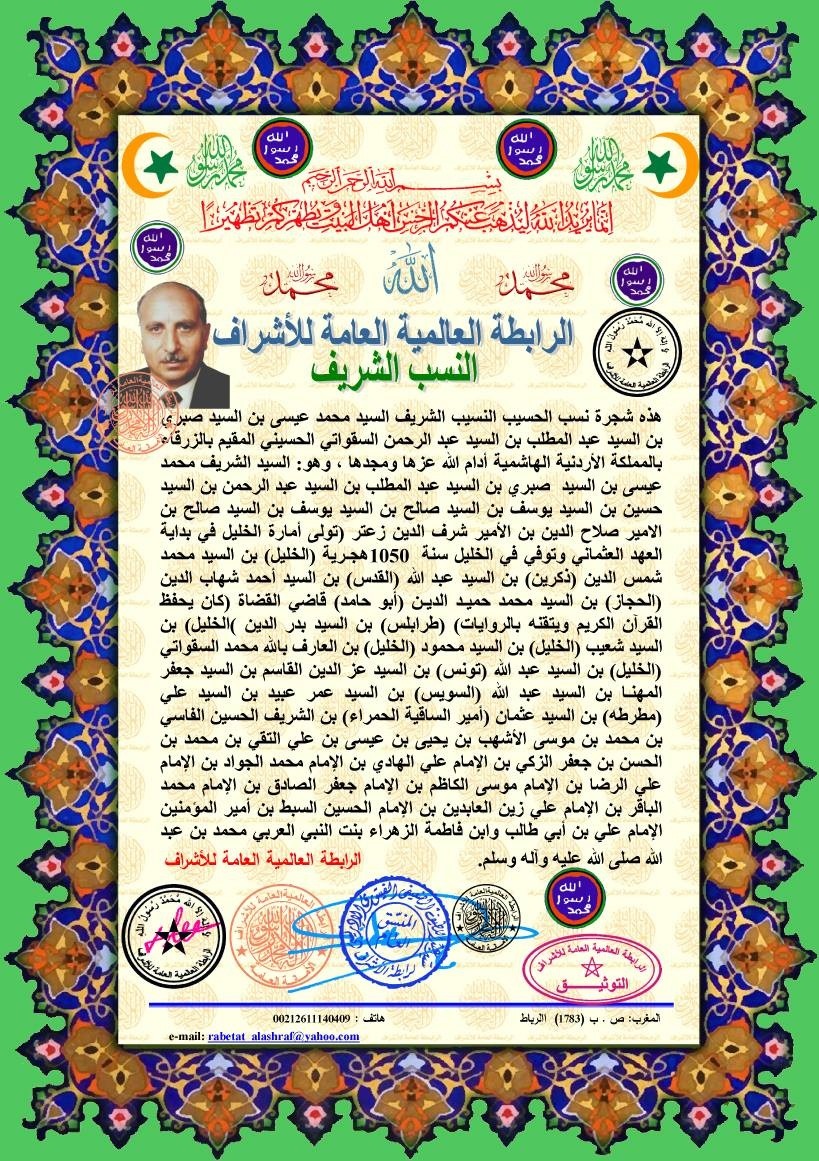 الله رسول محمد
الله رسول محمد
محمد رسول الله
محمد رسول الله
بسم الله الرحمن الرحيم
إنما يريد الله ليذهب عنكم الرجس أهل البيت ويطهركم تطهيرا
الله رسول محمد
الله رسول محمد
محمد رسول الله
الله
محمد رسول الله
الرابطة العالمية العامة للأشراف
النسب الشريف
لا إله إلا الله محمد رسول الله
الرابطة العالمية العامة للأشراف
هذه شجرة نسب الحسيب النسيب الشريف السيد محمد عيسى بن السيد صبري
بن السيد عبد المطلب بن السيد عبد الرحمن السقواتي الحسيني المقيم بالزرقاء
بالمملكة الأردنية الهاشمية أدام الله عزها ومجدها ، وهو: السيد الشريف محمد
عيسى بن السيد صبري بن السيد عبد المطلب بن السيد عبد الرحمن بن السيد
حسين بن السيد يوسف بن السيد صالح بن السيد يوسف بن السيد صالح بن
الامير صلاح الدين بن الأمير شرف الدين زعتر (تولى أمارة الخليل في بداية
العهد العثماني وتوفي في الخليل سنة 1050هجرية (الخليل) بن السيد محمد
شمس الدين (ذكرين) بن السيد عبد الله (القدس) بن السيد أحمد شهاب الدين
(الحجاز) بن السيد محمد حميد الدين (أبو حامد) قاضي القضاة (كان يحفظ
القرآن الكريم ويتقنه بالروايات) (طرابلس) بن السيد بدر الدين )الخليل) بن
السيد شعيب (الخليل) بن السيد محمود (الخليل) بن العارف بالله محمد السقواتي
(الخليل) بن السيد عبد الله (تونس) بن السيد عز الدين القاسم بن السيد جعفر
المهنا بن السيد عبد الله (السويس) بن السيد عمر عبيد بن السيد علي
(مطرطه) بن السيد عثمان (أمير الساقية الحمراء) بن الشريف الحسين الفاسي
بن محمد بن موسى الأشهب بن يحيى بن عيسى بن علي التقي بن محمد بن
الحسن بن جعفر الزكي بن الإمام علي الهادي بن الإمام محمد الجواد بن الإمام
علي الرضا بن الإمام موسى الكاظم بن الإمام جعفر الصادق بن الإمام محمد
الباقر بن الإمام علي زين العابدين بن الإمام الحسين السبط بن أمير المؤمنين
الإمام علي بن أبي طالب وابن فاطمة الزهراء بنت النبي العربي محمد بن عبد
الله صلى الله عليه وآله وسلم. الرابطة العالمية العامة للأشراف
الله رسول محمد
لا إله إلا الله محمد رسول الله
الرابطة العالمية العامة للأشراف
الرابطة العالمية العامة للأشراف
الأمانة العامة
لرابطة الأشراف
الرابطة العالمية العامة للأشراف
التوثيــق
المغرب: ص . ب (1783) االرباط هاتف : 00212611140409
e-mail: rabetat_alashraf@yahoo.com